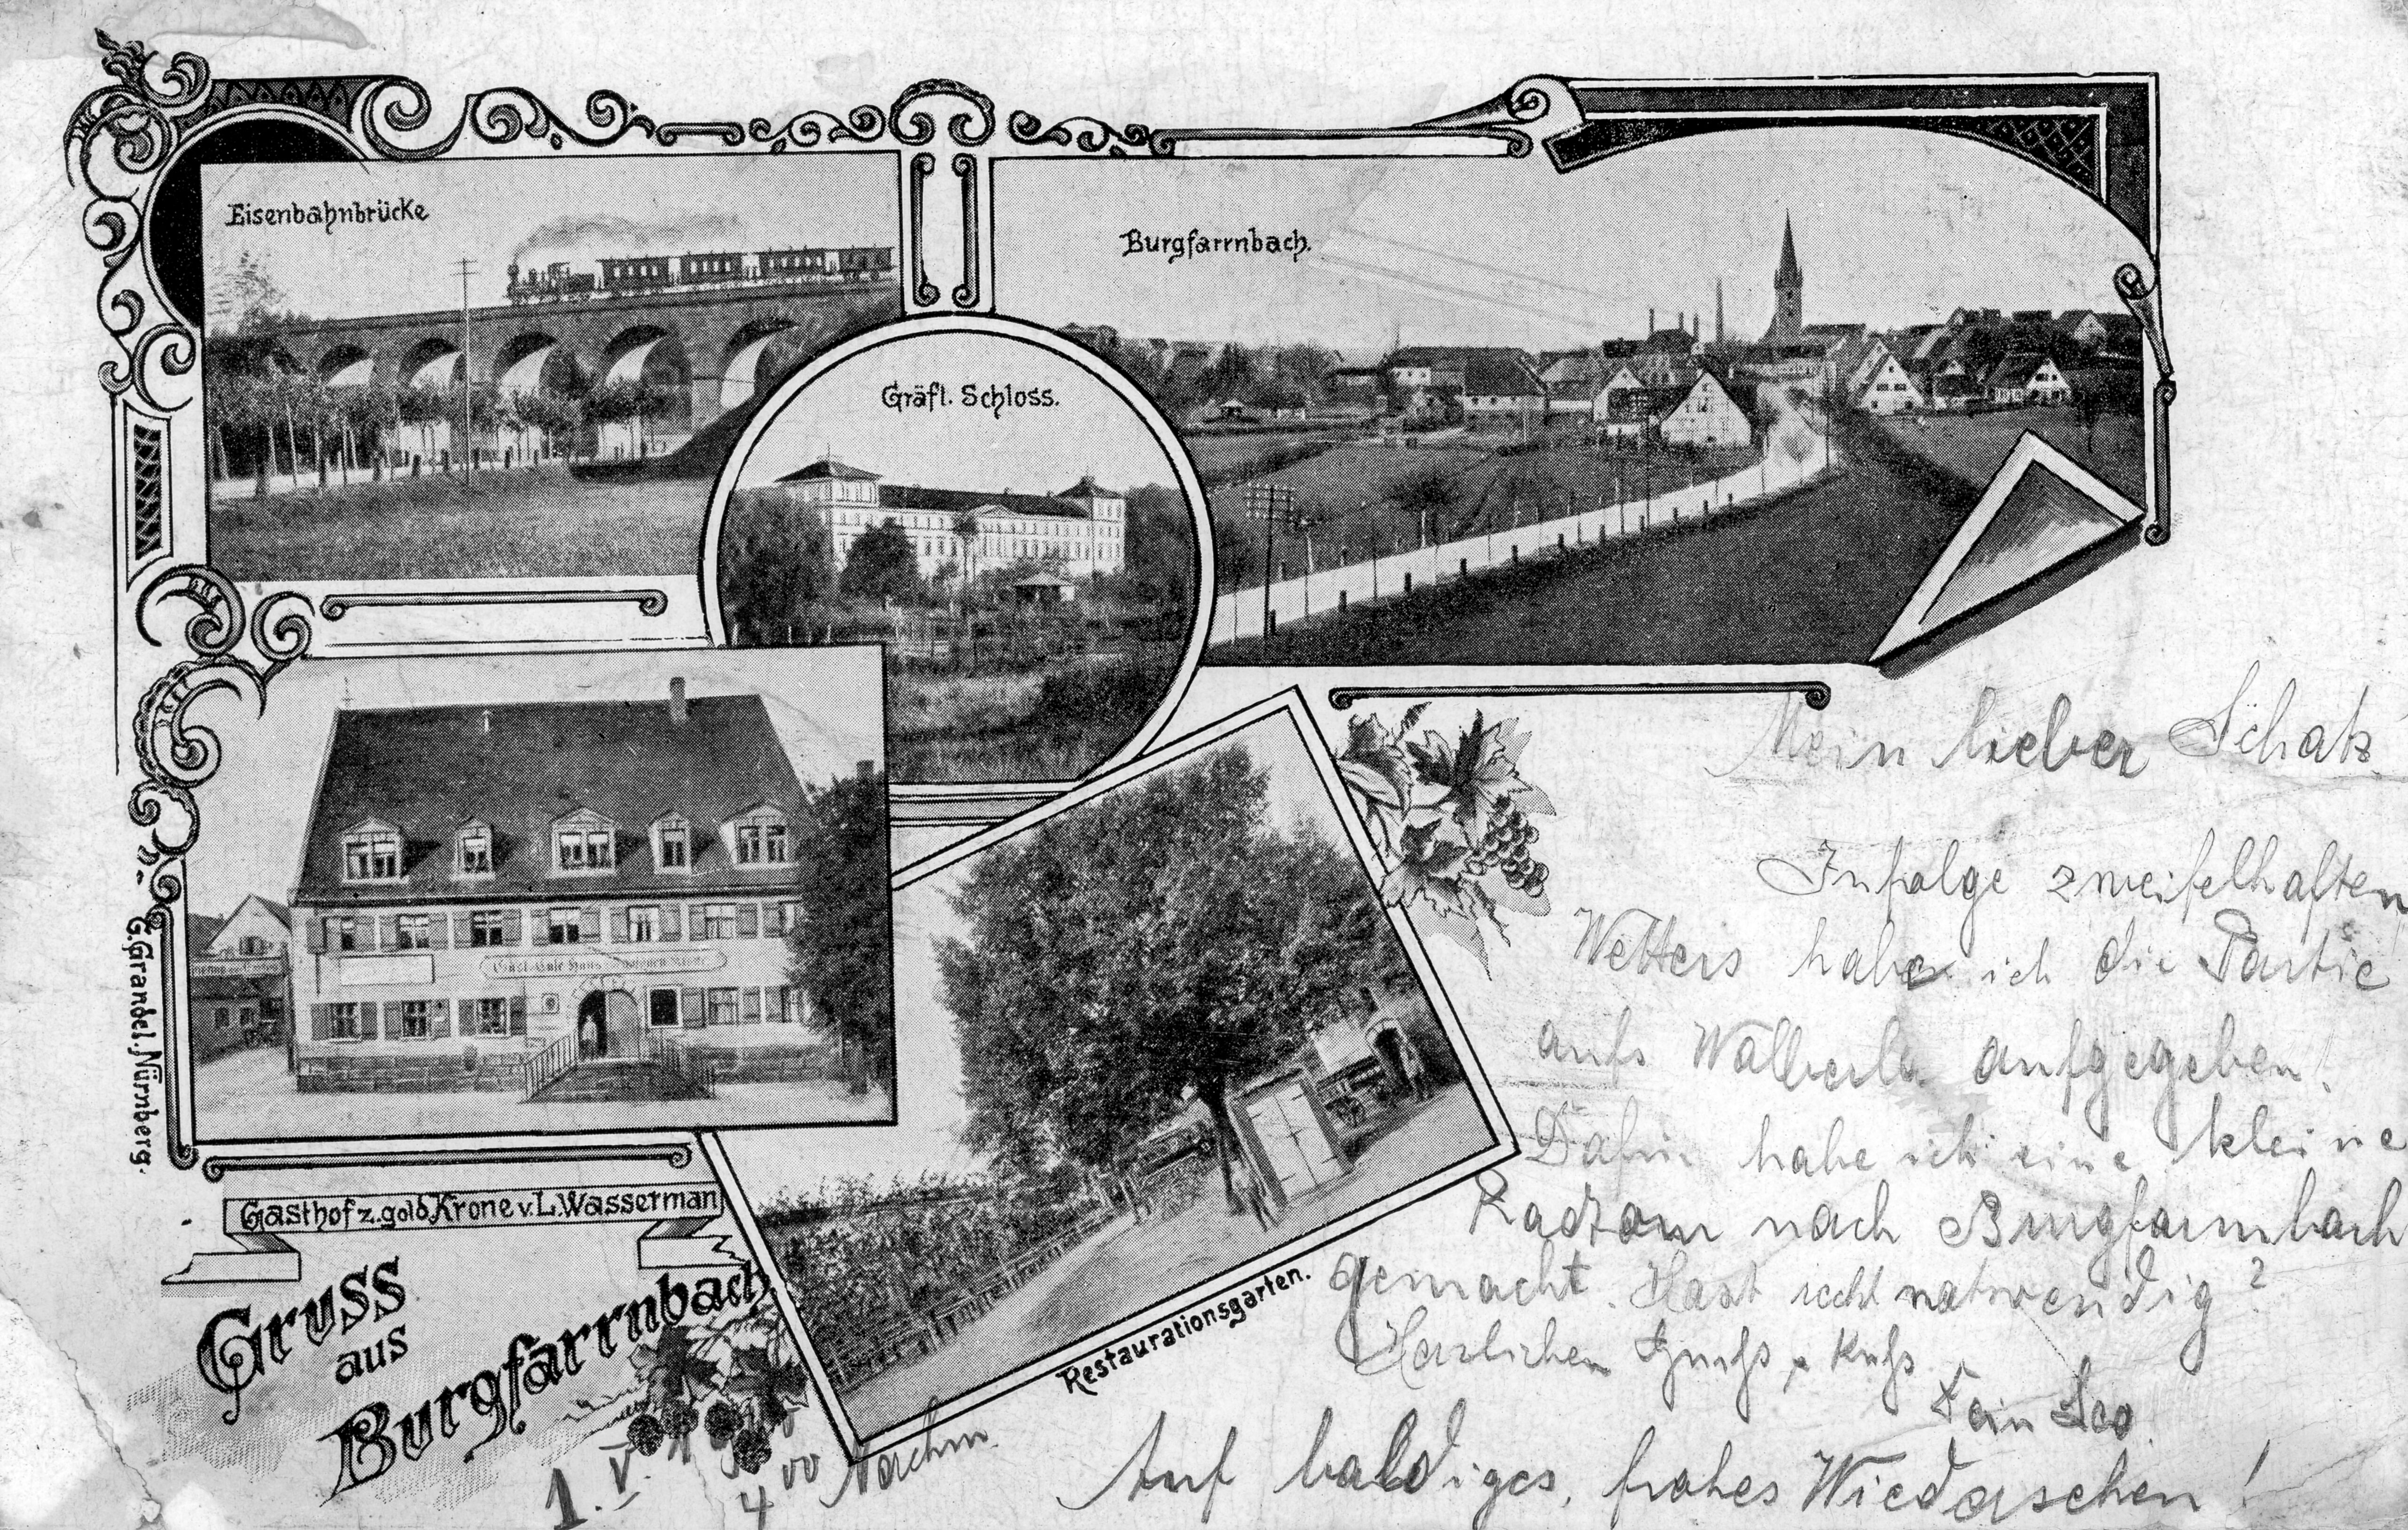 Eisenbahnbrücke
Burgfarrnbach.
Gräfl. Schloss.
G. Grandel. Nürnberg.
Gasthof z. gold. Krone v. L. Wasserman
Gruss
aus
Burgfarrnbach
Restaurationsgarten.
Mein lieber Schatz
Infolge zweifelhaften
Wetters habe ich die Partie
aufs Walberla aufgegeben!
Dafür habe ich eine kleine
Radtour nach Burgfarrnbach
gemacht. Hast recht notwendig?
Herzlichen Gruß & Kuß
Dein Leo.
Auf baldiges, frohes Wiedersehen!
1. V.
4 00 Nachm.